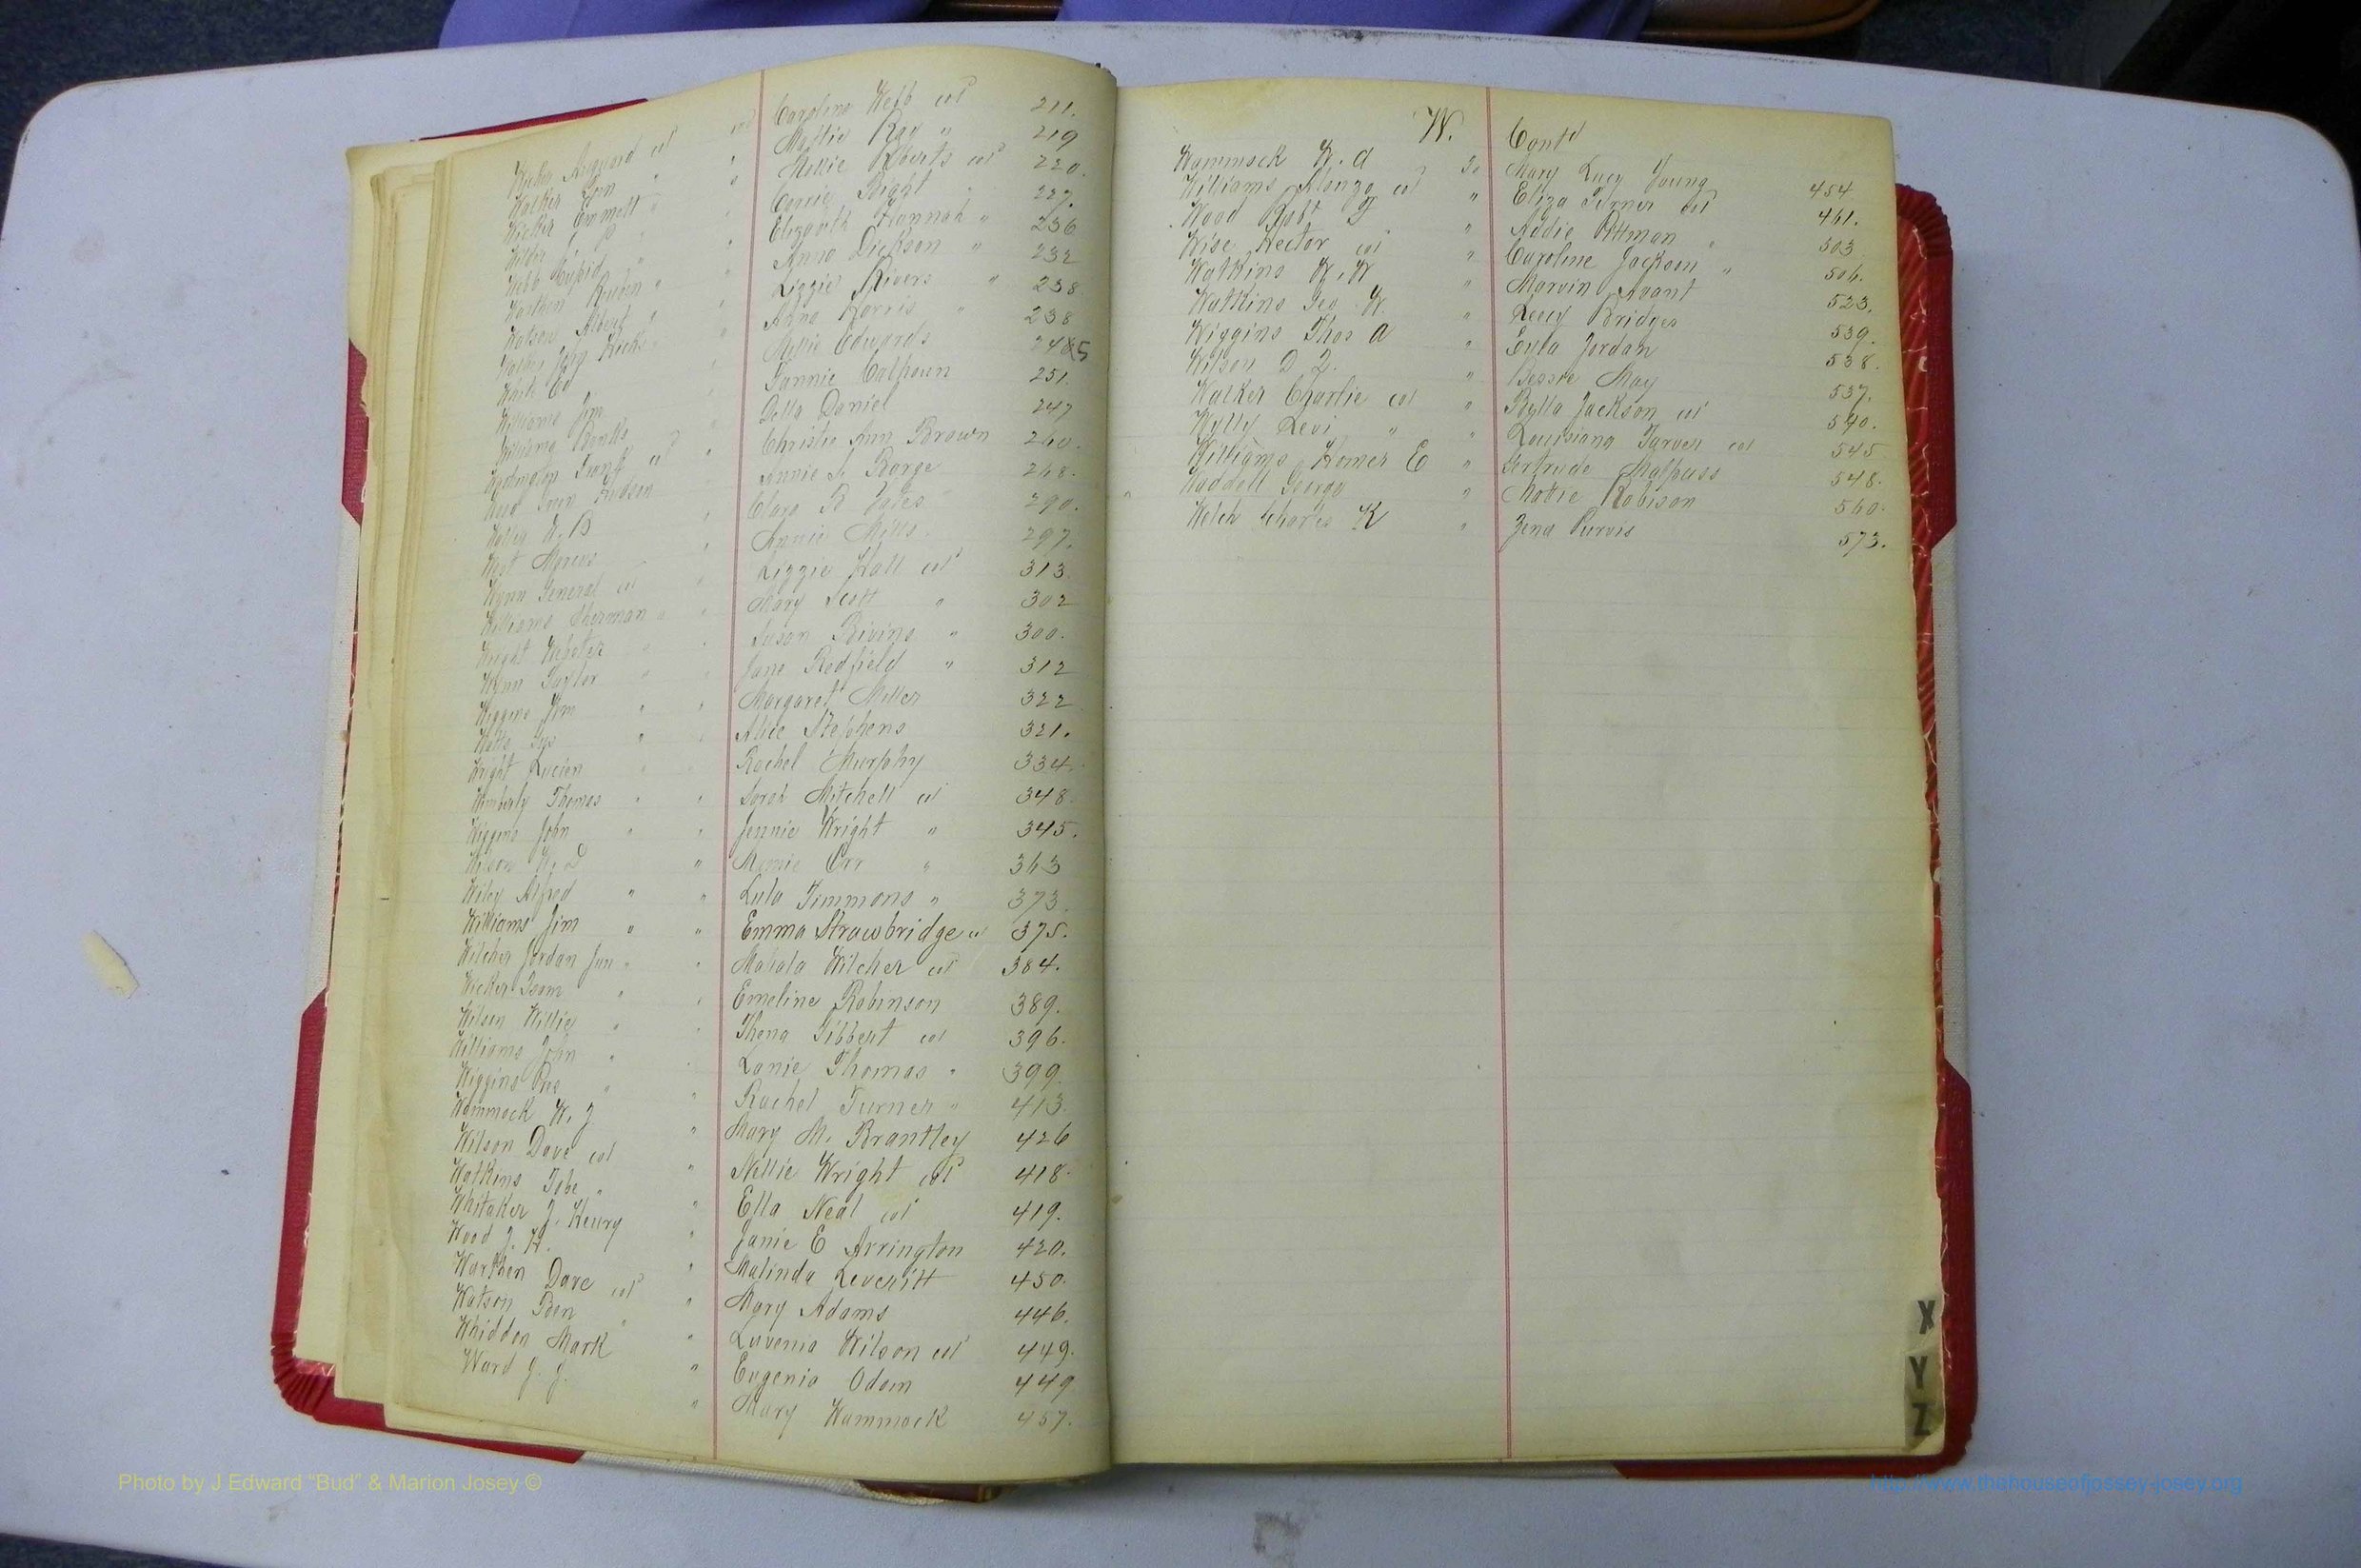 Caroline Webb col 211.
Walker Tom " " Mollie Ray " 219
Wicker Emmett " " Mollie Roberts col 220.
Carrie Right " 227.
Webb Cupid " " Elizabeth Hannah " 236
Worthen Ruben " " Anna Dickson " 232
Watson Albert " " Lizzie Rivers " 238
Anna Harris " 238
White Ed " Mollie Edwards 245
Williams Jim Fannie Calhoun 251.
Williams Della Daniel 247
Frank col " Christie Ann Brown 260.
Annie L Barge 268.
W. B " Clara B 290.
West Marcus " Annie Mills 297.
Wynn General col " Lizzie Hall col 313
Williams Sherman " " Mary Scott " 302
Wright Webster " " Susan Bivins " 300.
Wynn Taylor " " Jane Redfield " 312
Wiggins Jim " " Margaret Miller 322
Watts " " Alice Stephens 321.
Wright Lucien " " Rachel Murphy 334.
Wimberly Thomas " " Sarah Mitchell col 348
Wiggins John " " Jennie Wright " 345.
Wilson W. D " Mamie Orr " 363
Wiley Alfred " " Lula Timmons " 373
Williams Jim " " Emma Strawbridge col 375.
Wilcher Jordan Jun " " Mahala Wilcher col 384.
Wicker Isom " " Emeline Robinson 389.
Wilson Willie " " Thena Tibbert col 396.
Williams John " " Lanie Thomas " 399.
Wiggins " " Rachel Turner " 413.
Wammock W. J. " Mary M. Brantley 426
Wilson Dave col " Nellie Wright col 418.
Watkins Tobe " " Ella Neal col 419.
Whitaker J. Henry " Janie E Arrington 420.
Wood J. H. " Malinda Leveritt 450.
Warthen Dave col " Mary Adams 446.
Watson Ben " " Luvenia Wilson col 449.
Whiddon Mark " Eugenia Odom 449
Ward J. J. " Mary Wammock 457.
W. Cont'd
Wammock W. A To Mary Lucy Young 454
Williams Alonzo col " Eliza Turner col 461.
Wood Robt F " Addie Pittman " 503
Wise Hector col " Caroline Jackson " 506.
Watkins W. W " Marvin Avant 523.
Watkins Geo. W. " Lucy Bridges 539.
Wiggins Thos A " Eula Jordan 538.
Wilson D Z. " Bessie May 537.
Walker Charlie col " Bylla Jackson col 540.
Wylly Levi " " Louisiana Tarver col 545
Williams Homer E " Gertrude Malpass 548.
Waddell George " Mattie Robison 560.
Welch Charles K " Zena Purvis 573.
X
Y
Z
Photo by J Edward “Bud” & Marion Josey ©
http://www.thehouseofjossey-josey.org